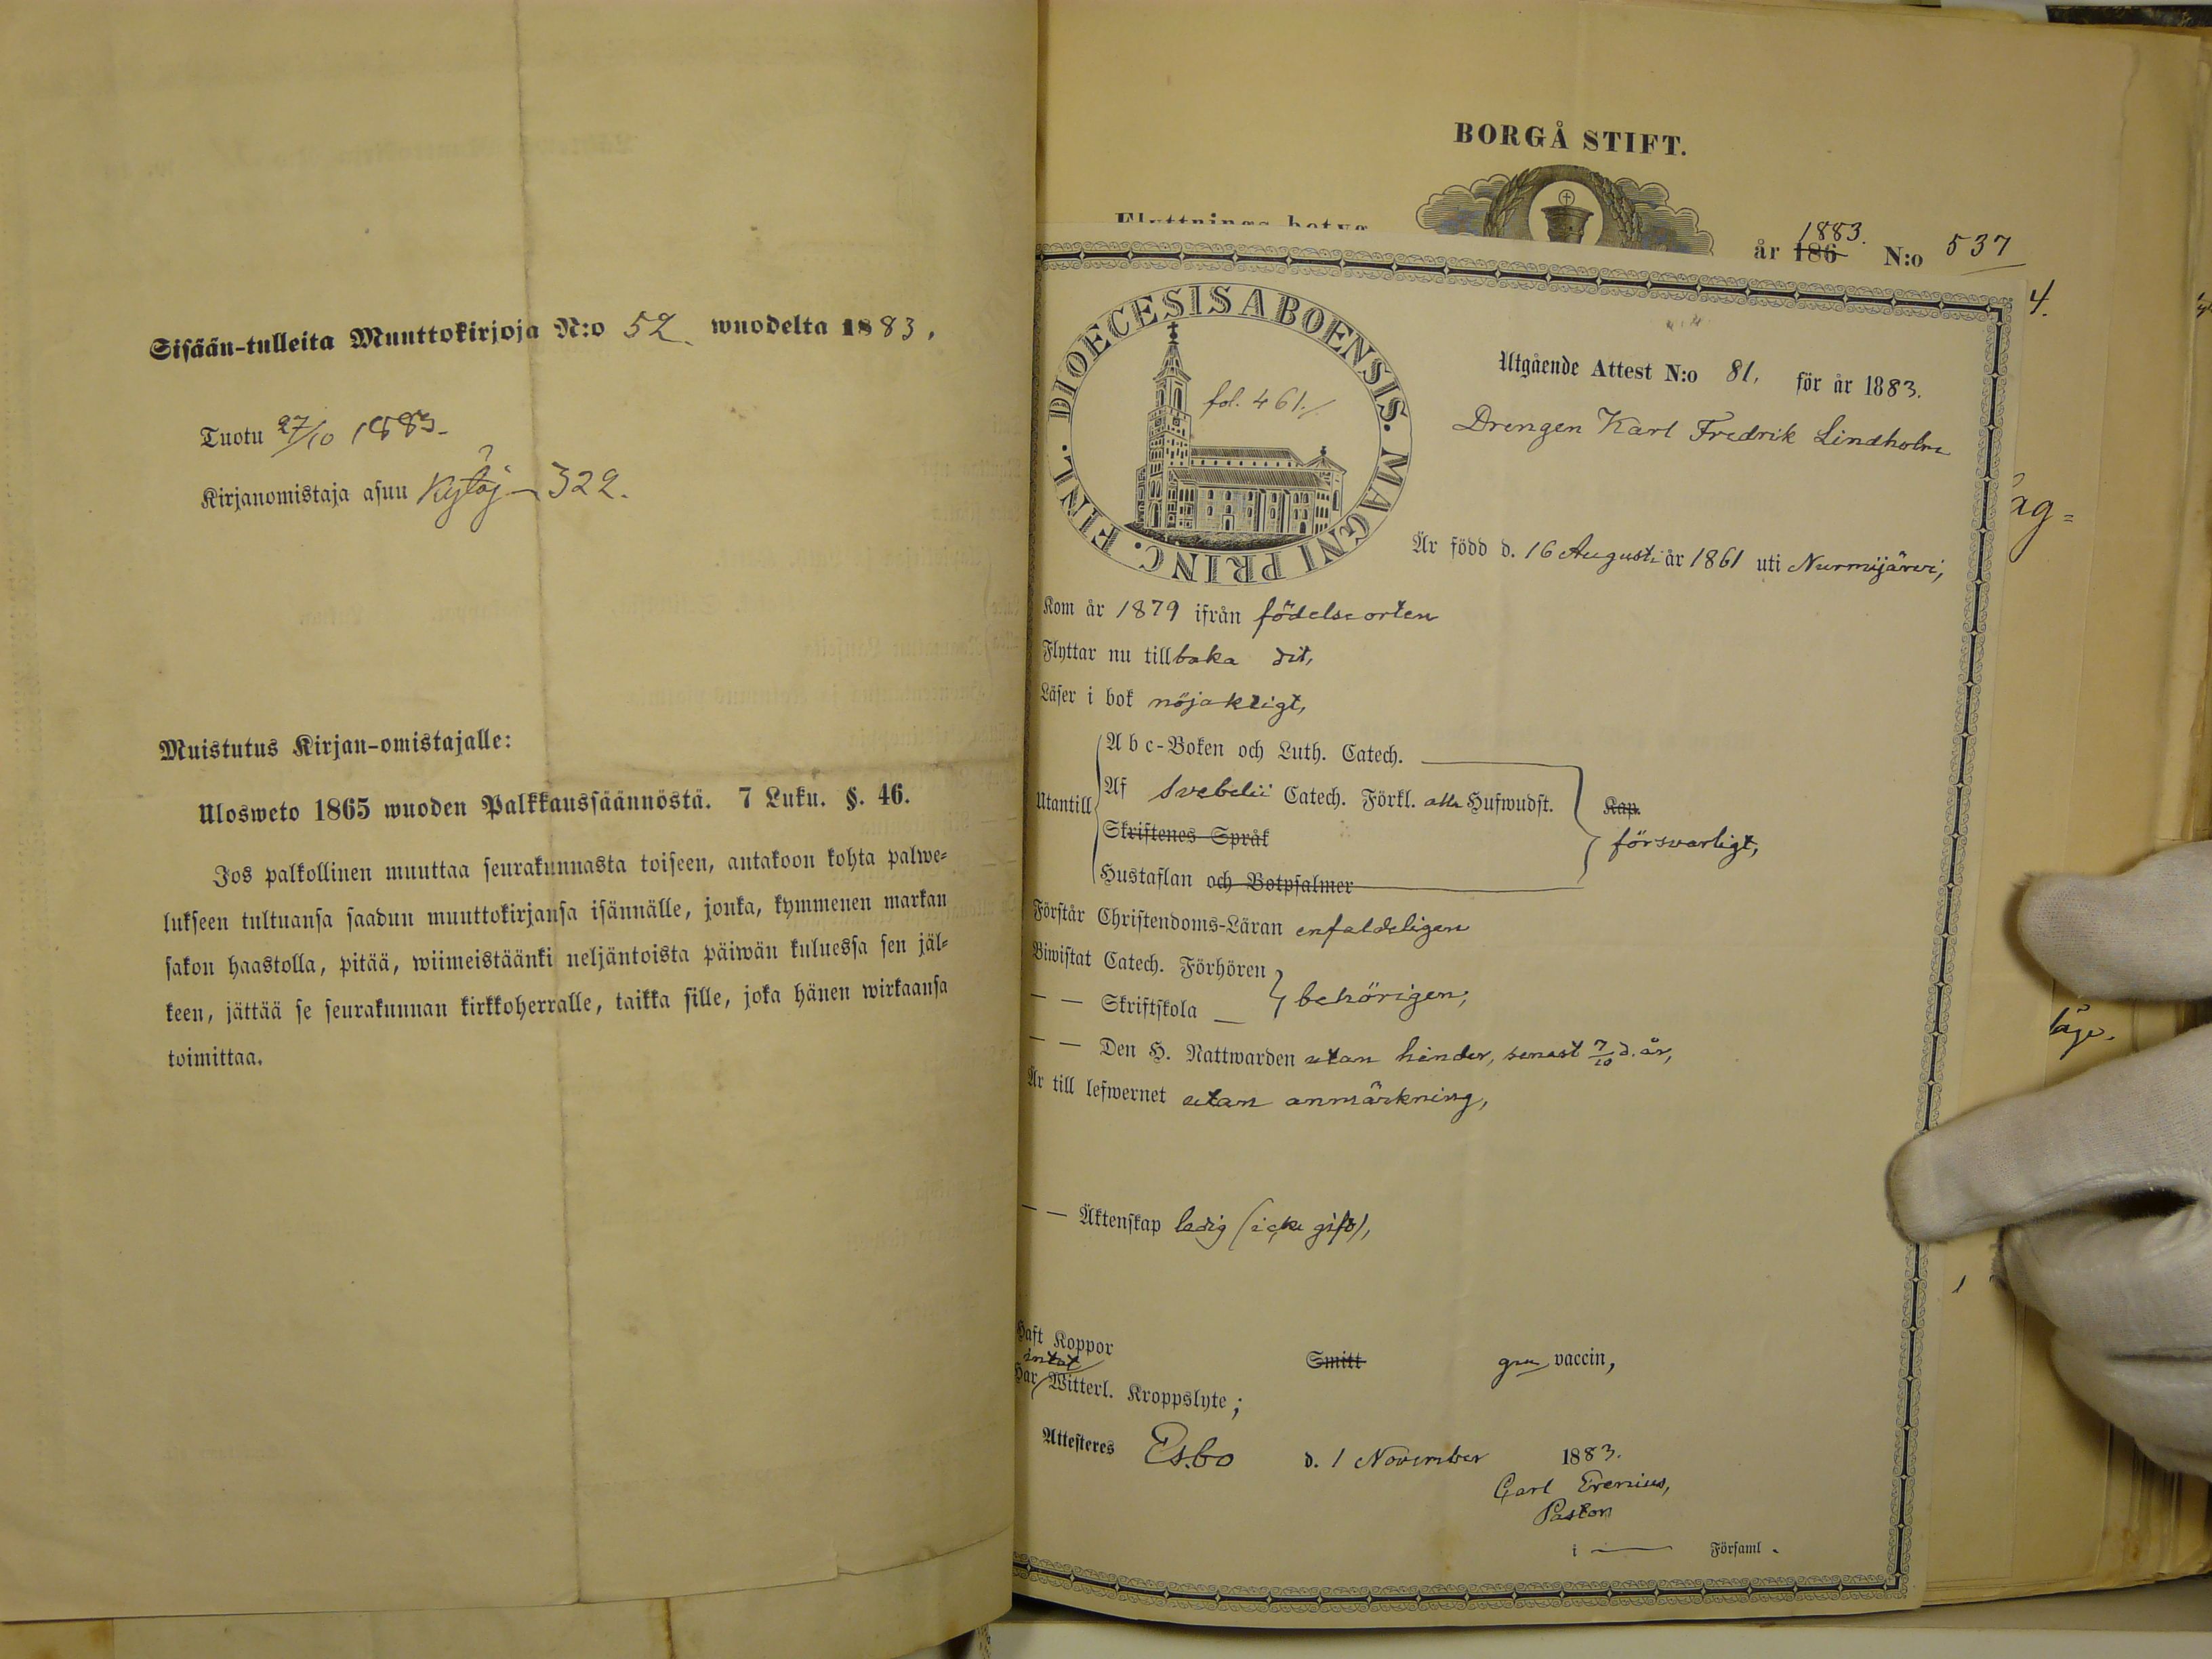 Sisään-tulleita Muuttokirjoja N:o 52. wuodelta 1883.
Tuotu 27/10 1883.
Kirjanomistaja asuu Kytäj 322.
Muistutus Kirjan-omistajalle:
Ulosweto 1865 wuoden Palkkaussäännöstä. 7 Luku. §. 46.
Jos palkollinen muuttaa seurakunnasta toiseen, antakoon kohta palwe-
lukseen tultuansa saadun muuttokirjansa isännälle, jonka, kymmenen markan
sakon haastolla, pitää, wiimeistäänki neljäntoista päiwän kuluessa sen jäl-
keen, jättää se seurakunnan kirkkoherralle, taikka sille, joka hänen wirkaansa
toimittaa.
BORGÅ STIFT.
Flyttnings-betyg
1883.
år 186 N:o 537
4.
DIOECESIS ABOENSIS. MAGNI PRINC. FINL.
fol. 461.
Utgående Attest N:o 81. för år 1883.
Drengen Karl Fredrik Lindholm
Är född d. 16 Augusti år 1861 uti Nurmijärvi,
Kom år 1879 ifrån födelseorten
Flyttar nu tillbaka dit,
Läser i bok nöjaktigt,
Abc-Boken och Luth. Catech.
Utantill Af Svebelii Catech. Förkl. alla Hufwudst. Kap.
Skriftenes Språk försvarligt,
Hustaflan och Botpsalmer
Förstår Christendoms-Läran enfaldeligen
Biwistat Catech. Förhören
— — Skriftskola behörigen,
— — Den H. Nattwarden utan hinder, senast 7/10 d. år,
Är till lefwernet utan anmärkning,
— — Äktenskap ledig (icke gift),
Haft Koppor Smitt gm vaccin,
intet
Har Witterl. Kroppslyte;
Attesteres Esbo d. 1 November 1883.
Carl Erenius,
Pastor
i — Församl.